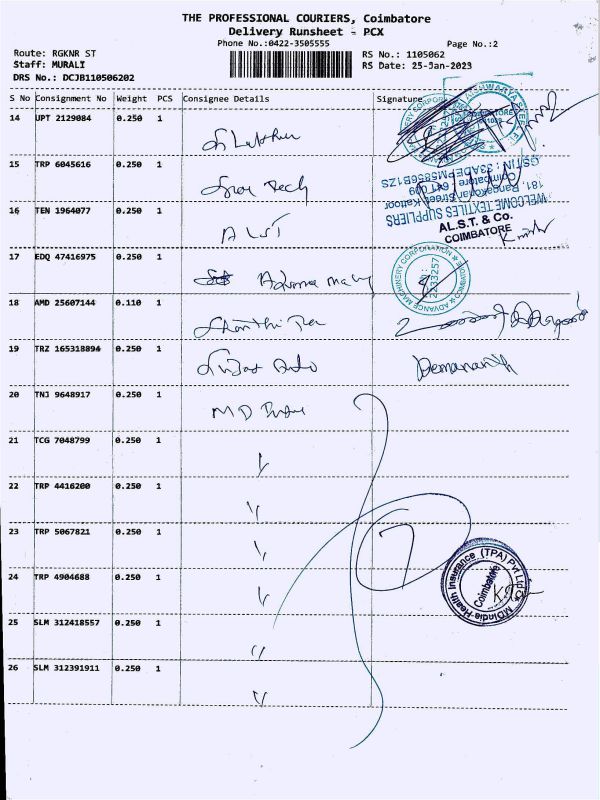 THE PROFESSIONAL COURIERS, Coimbatore
Delivery Runsheet - PCX
Phone No.:0422-3505555 Page No.:2
Route: RGKNR ST RS No.: 1105062
Staff: MURALI RS Date: 25-Jan-2023
DRS No.: DCJB110506202
S No Consignment No Weight PCS Consignee Details Signature
14 UPT 2129084 0.250 1
15 TRP 6045616 0.250 1
GSTIN : 33ADEPM5856B1ZS
Coimbatore - 641 009
181, Rangakonar Street, Kattoor
WELCOME TEXTILES SUPPLIERS
16 TEN 1964077 0.250 1 ALST
AL.S.T. & Co.
COIMBATORE
17 EDQ 47416975 0.250 1
ADVANCE MACHINERY CORPORATION
COIMBATORE
2233257
18 AMD 25607144 0.110 1
19 TRZ 165318894 0.250 1
20 TNJ 9648917 0.250 1 MD
21 TCG 7048799 0.250 1 "
22 TRP 4416200 0.250 1 "
23 TRP 5067821 0.250 1 "
7
24 TRP 4904688 0.250 1 "
MDIndia Health Insurance (TPA) Pvt Ltd
Coimbatore
25 SLM 312418557 0.250 1 "
26 SLM 312391911 0.250 1 "